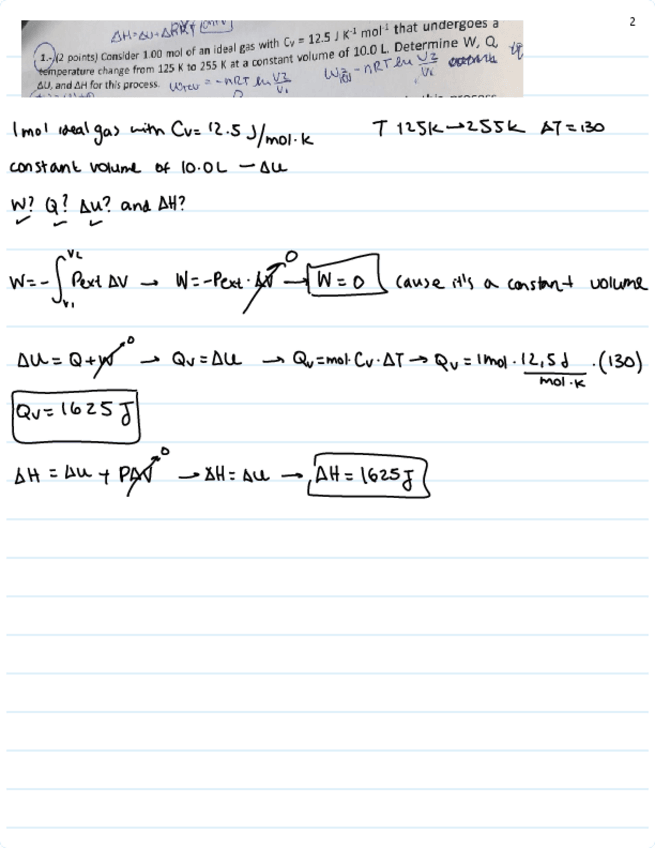 2
ΔH=ΔU+ΔRXT
1.- (2 points) Consider 1.00 mol of an ideal gas with Cv = 12.5 J K⁻¹ mol⁻¹ that undergoes a
temperature change from 125 K to 255 K at a constant volume of 10.0 L. Determine W, Q,
ΔU, and ΔH for this process. Wrev = -nRT ln V2/V1 W = -nRT ln V2/V1
1 mol ideal gas with Cv= 12.5 J/mol·K T 125K→255K ΔT=130
constant volume of 10.0L – ΔU
W? Q? ΔU? and ΔH?
W=-∫V1V2 Pext ΔV → W=-Pext·ΔV 0 → W=0 cause it's a constant volume
ΔU=Q+W 0 → Qv=ΔU → Qv=mol·Cv·ΔT → Qv=1mol·12,5J/mol·K·(130)
Qv=1625J
ΔH=ΔU+PΔV 0 → ΔH=ΔU → ΔH=1625J